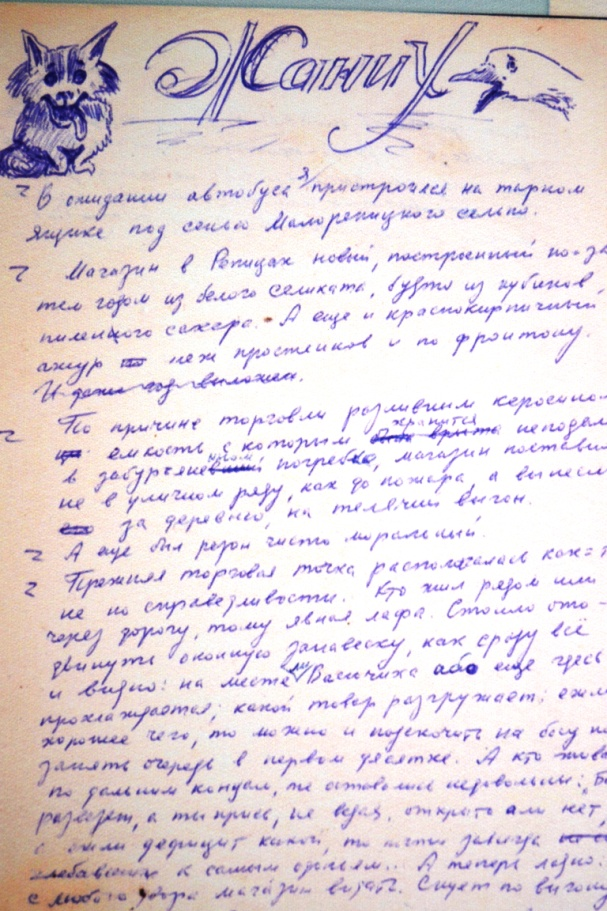 Жанну
В ожидании автобуса я пристроился на тарном
ящике под сенью Малорепицкого сельпо.
Магазин в Репицах новый, построенный по-за
тем годом из белого силиката, будто из кубиков
пиленого сахара. А еще и краснокирпичный
ажур меж простенков и по фронтону.
И даже год выложен.
По причине торговли разливным керосином
емкость с которым хранится неподал
в забурьяненном погребке, магазин поставили
не в уличном ряду, как до пожара, а вынесли
за деревню, на телячий выгон.
А еще был резон чисто моральный.
Прежняя торговая точка располагалась как-т
не по справедливости. Кто жил рядом или
через дорогу, тому явная лафа. Стоило ото-
двинуть оконную занавеску, как сразу всё
и видно: на месте ли Васючиха або еще здесь
прохлаждается; какой товар разгружает; ежел
хорошее чего, то можно и подскочить на босу но
занять очередь в первом десятке. А кто жива
по дальним концам, те оставались недовольны:
а ты прись, не ведая, открыто али нет,
а ежли дефицит какой, то почти завсегда
к самым одоньям... А теперь ладно.
с любого двора магазин видать. Сидит по выгону